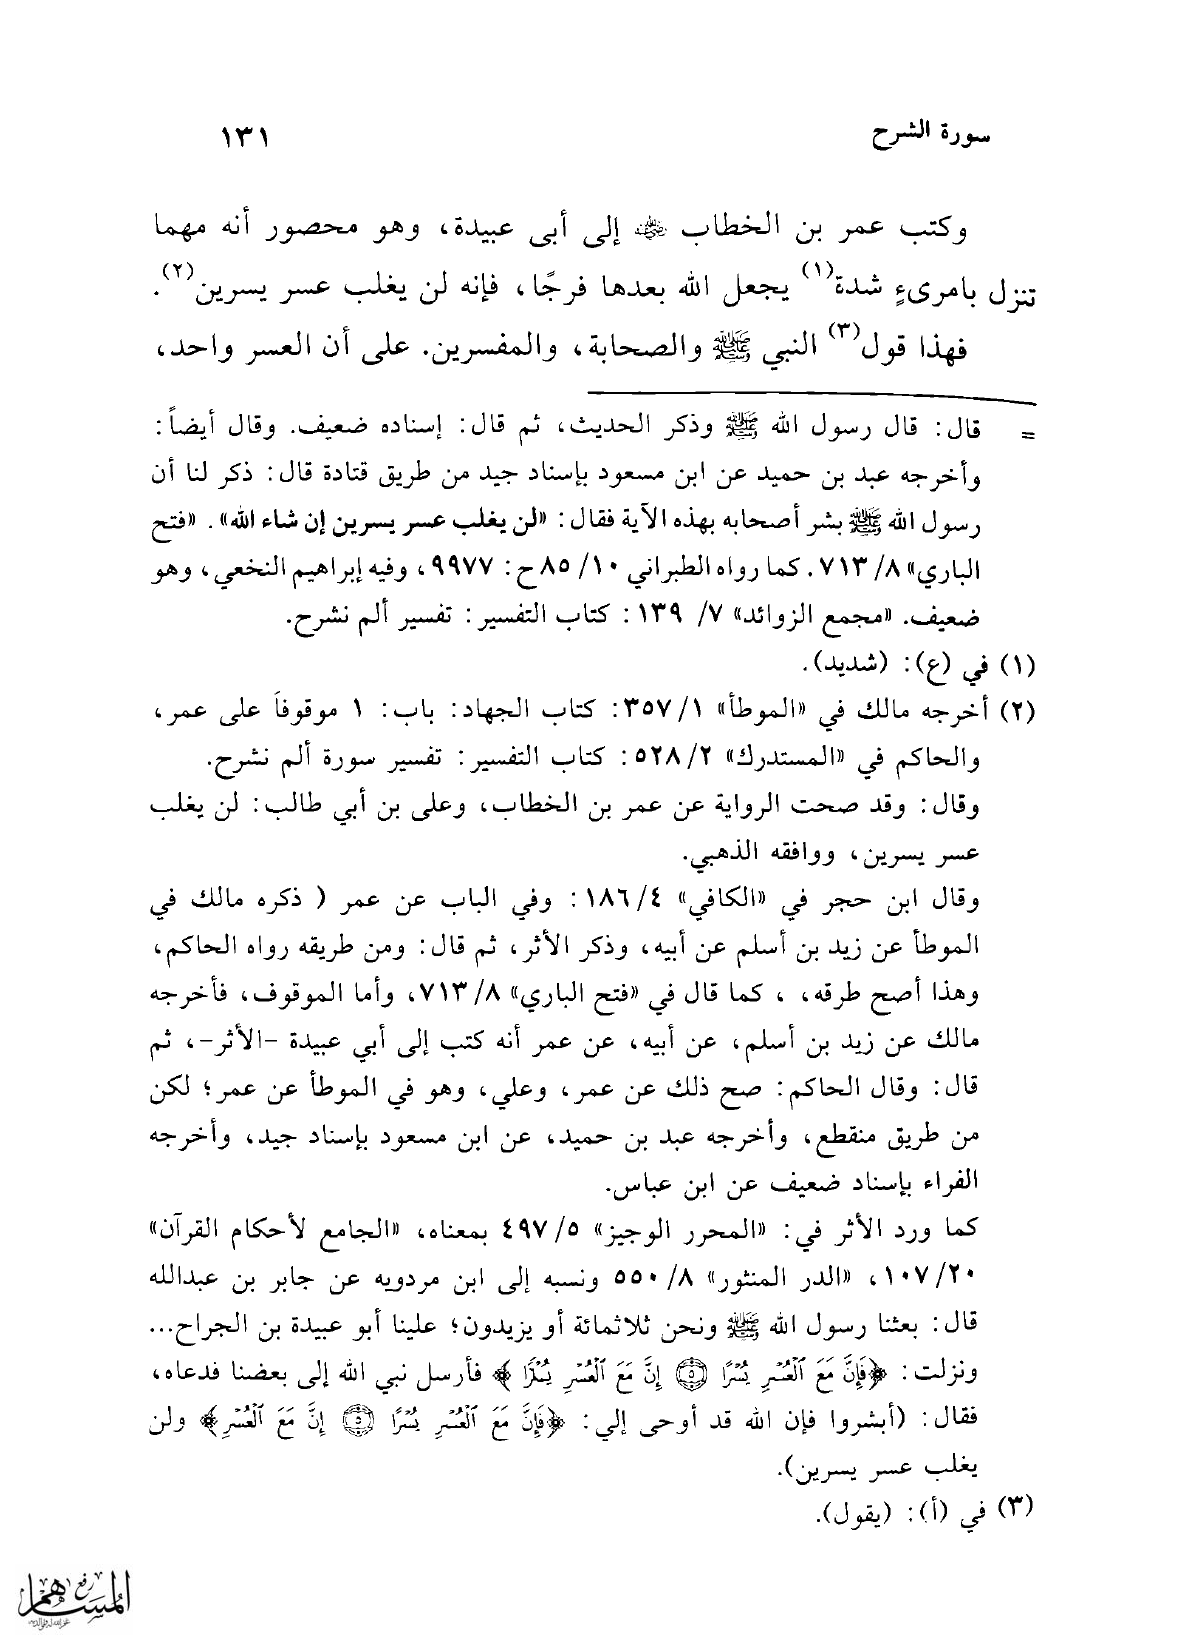 سورة الشرح
١٣١
وكتب عمر بن الخطاب رضي الله عنه إلى أبى عبيدة، وهو محصور أنه مهما
تنزل بامرىءٍ شدة(١) يجعل الله بعدها فرجًا، فإنه لن يغلب عسر يسرين(٢).
فهذا قول(٣) النبي ﷺ والصحابة، والمفسرين. على أن العسر واحد،
= قال: قال رسول الله ﷺ وذكر الحديث، ثم قال: إسناده ضعيف. وقال أيضاً:
وأخرجه عبد بن حميد عن ابن مسعود بإسناد جيد من طريق قتادة قال: ذكر لنا أن
رسول الله ﷺ بشر أصحابه بهذه الآية فقال: «لن يغلب عسر يسرين إن شاء الله». «فتح
الباري» ٨/ ٧١٣. كما رواه الطبراني ١٠/ ٨٥ح: ٩٩٧٧، وفيه إبراهيم النخعي، وهو
ضعيف. «مجمع الزوائد» ٧/ ١٣٩: كتاب التفسير: تفسير ألم نشرح.
(١) في (ع): (شديد).
(٢) أخرجه مالك في «الموطأ» ١/ ٣٥٧: كتاب الجهاد: باب: ١ موقوفاً على عمر،
والحاكم في «المستدرك» ٢/ ٥٢٨: كتاب التفسير: تفسير سورة ألم نشرح.
وقال: وقد صحت الرواية عن عمر بن الخطاب، وعلى بن أبي طالب: لن يغلب
عسر يسرين، ووافقه الذهبي.
وقال ابن حجر في «الكافي» ٤/ ١٨٦: وفي الباب عن عمر ( ذكره مالك في
الموطأ عن زيد بن أسلم عن أبيه، وذكر الأثر، ثم قال: ومن طريقه رواه الحاكم،
وهذا أصح طرقه، ، كما قال في «فتح الباري» ٨/ ٧١٣، وأما الموقوف، فأخرجه
مالك عن زيد بن أسلم، عن أبيه، عن عمر أنه كتب إلى أبي عبيدة -الأثر-، ثم
قال: وقال الحاكم: صح ذلك عن عمر، وعلي، وهو في الموطأ عن عمر؛ لكن
من طريق منقطع، وأخرجه عبد بن حميد، عن ابن مسعود بإسناد جيد، وأخرجه
الفراء بإسناد ضعيف عن ابن عباس.
كما ورد الأثر في: «المحرر الوجيز» ٥/ ٤٩٧ بمعناه، «الجامع لأحكام القرآن»
٢٠/ ١٠٧، «الدر المنثور» ٨/ ٥٥٠ ونسبه إلى ابن مردويه عن جابر بن عبدالله
قال: بعثنا رسول الله ﷺ ونحن ثلاثمائة أو يزيدون؛ علينا أبو عبيدة بن الجراح...
ونزلت: ﴿فَإِنَّ مَعَ الْعُسْرِ يُسْرًا ۝٥ إِنَّ مَعَ الْعُسْرِ يُسْرًا﴾ فأرسل نبي الله إلى بعضنا فدعاه،
فقال: (أبشروا فإن الله قد أوحى إلي: ﴿فَإِنَّ مَعَ الْعُسْرِ يُسْرًا ۝٥ إِنَّ مَعَ الْعُسْرِ﴾ ولن
يغلب عسر يسرين).
(٣) في (أ): (يقول).